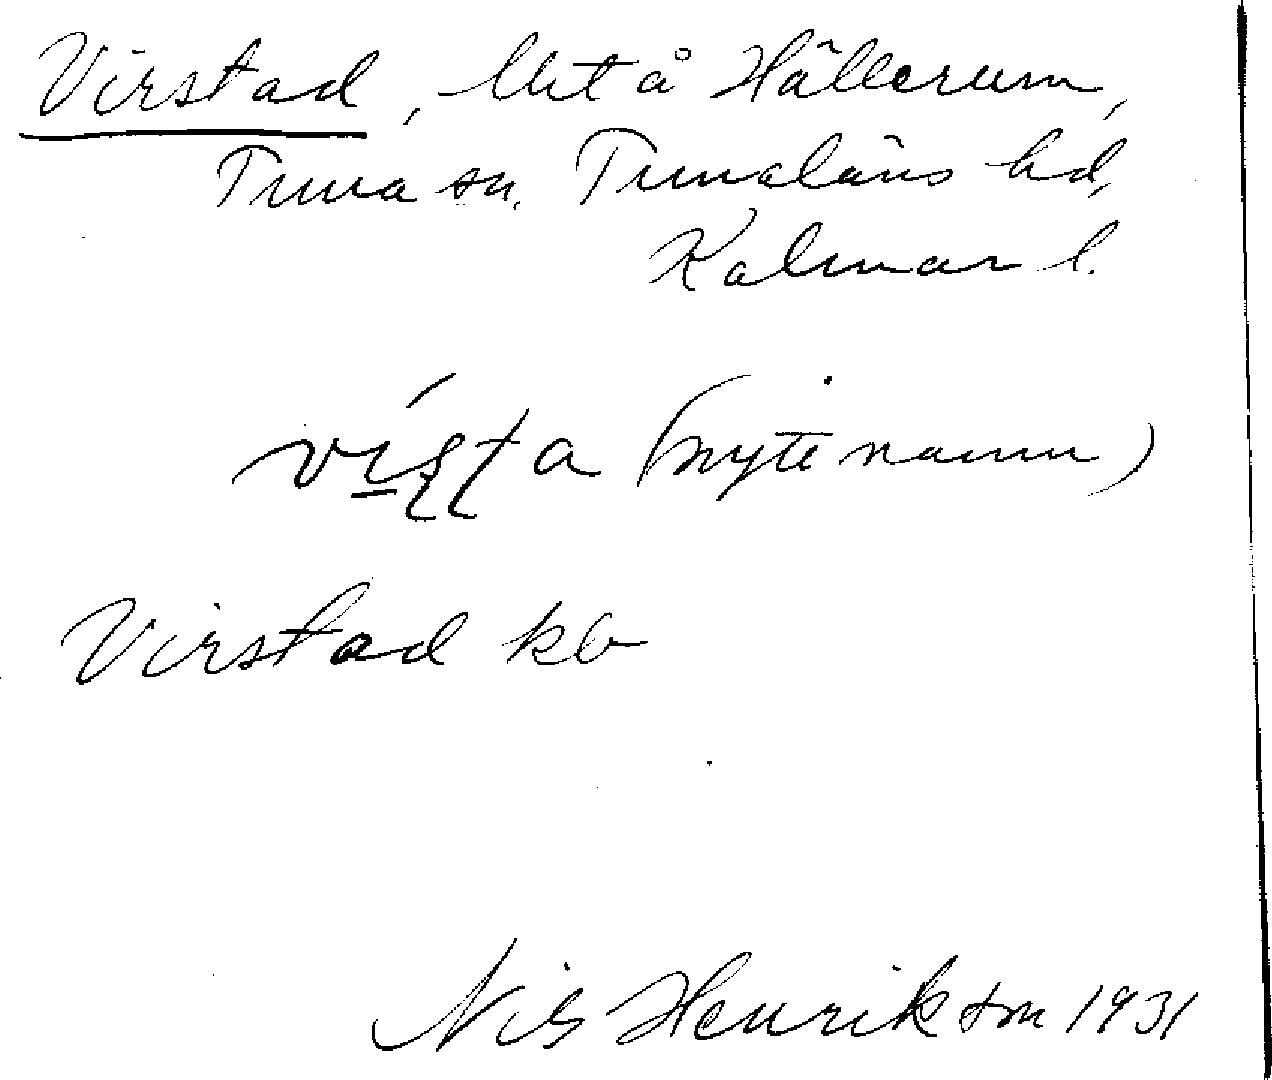 Virstad, lht å Hällerum,
Tuna sn, Tunaläns hd,
Kalmar l.
(nytt namn)
Virstad kb
Nils Henrikson 1931